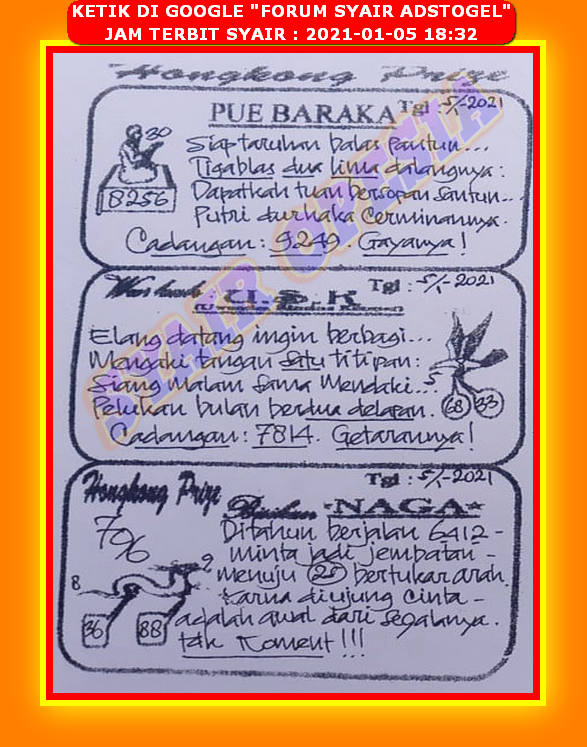 KETIK DI GOOGLE "FORUM SYAIR ADSTOGEL"
JAM TERBIT SYAIR : 2021-01-05 18:32
Hongkong Prize
PUE BARAKA Tgl : 5/1-2021
30
8256
Siap taruhan balas pantun...
Tigablas dua lima dalangnya :
Dapatkah tuan bersopan santun...
Putri durhaka cerminannya.
Cadangan : 9249. Gayanya !
C.S.K Tgl : 5/1-2021
Elang datang ingin berbagi...
Mengaki tangan satu titipan :
Siang malam sama mendaki...
Pelukan bulan berdua delapan.
5
68 33
Cadangan : 7814. Getarannya !
Tgl : 5/1-2021
Hongkong Prize
NAGA
70%
8
9
36 88
Ditahun berjalan 6412 -
minta jadi jembatan -
menuju 25 bertukar arah.
karna diujung cinta -
adalah awal dari segalanya.
tak koment !!!
SYAIR OPESIA